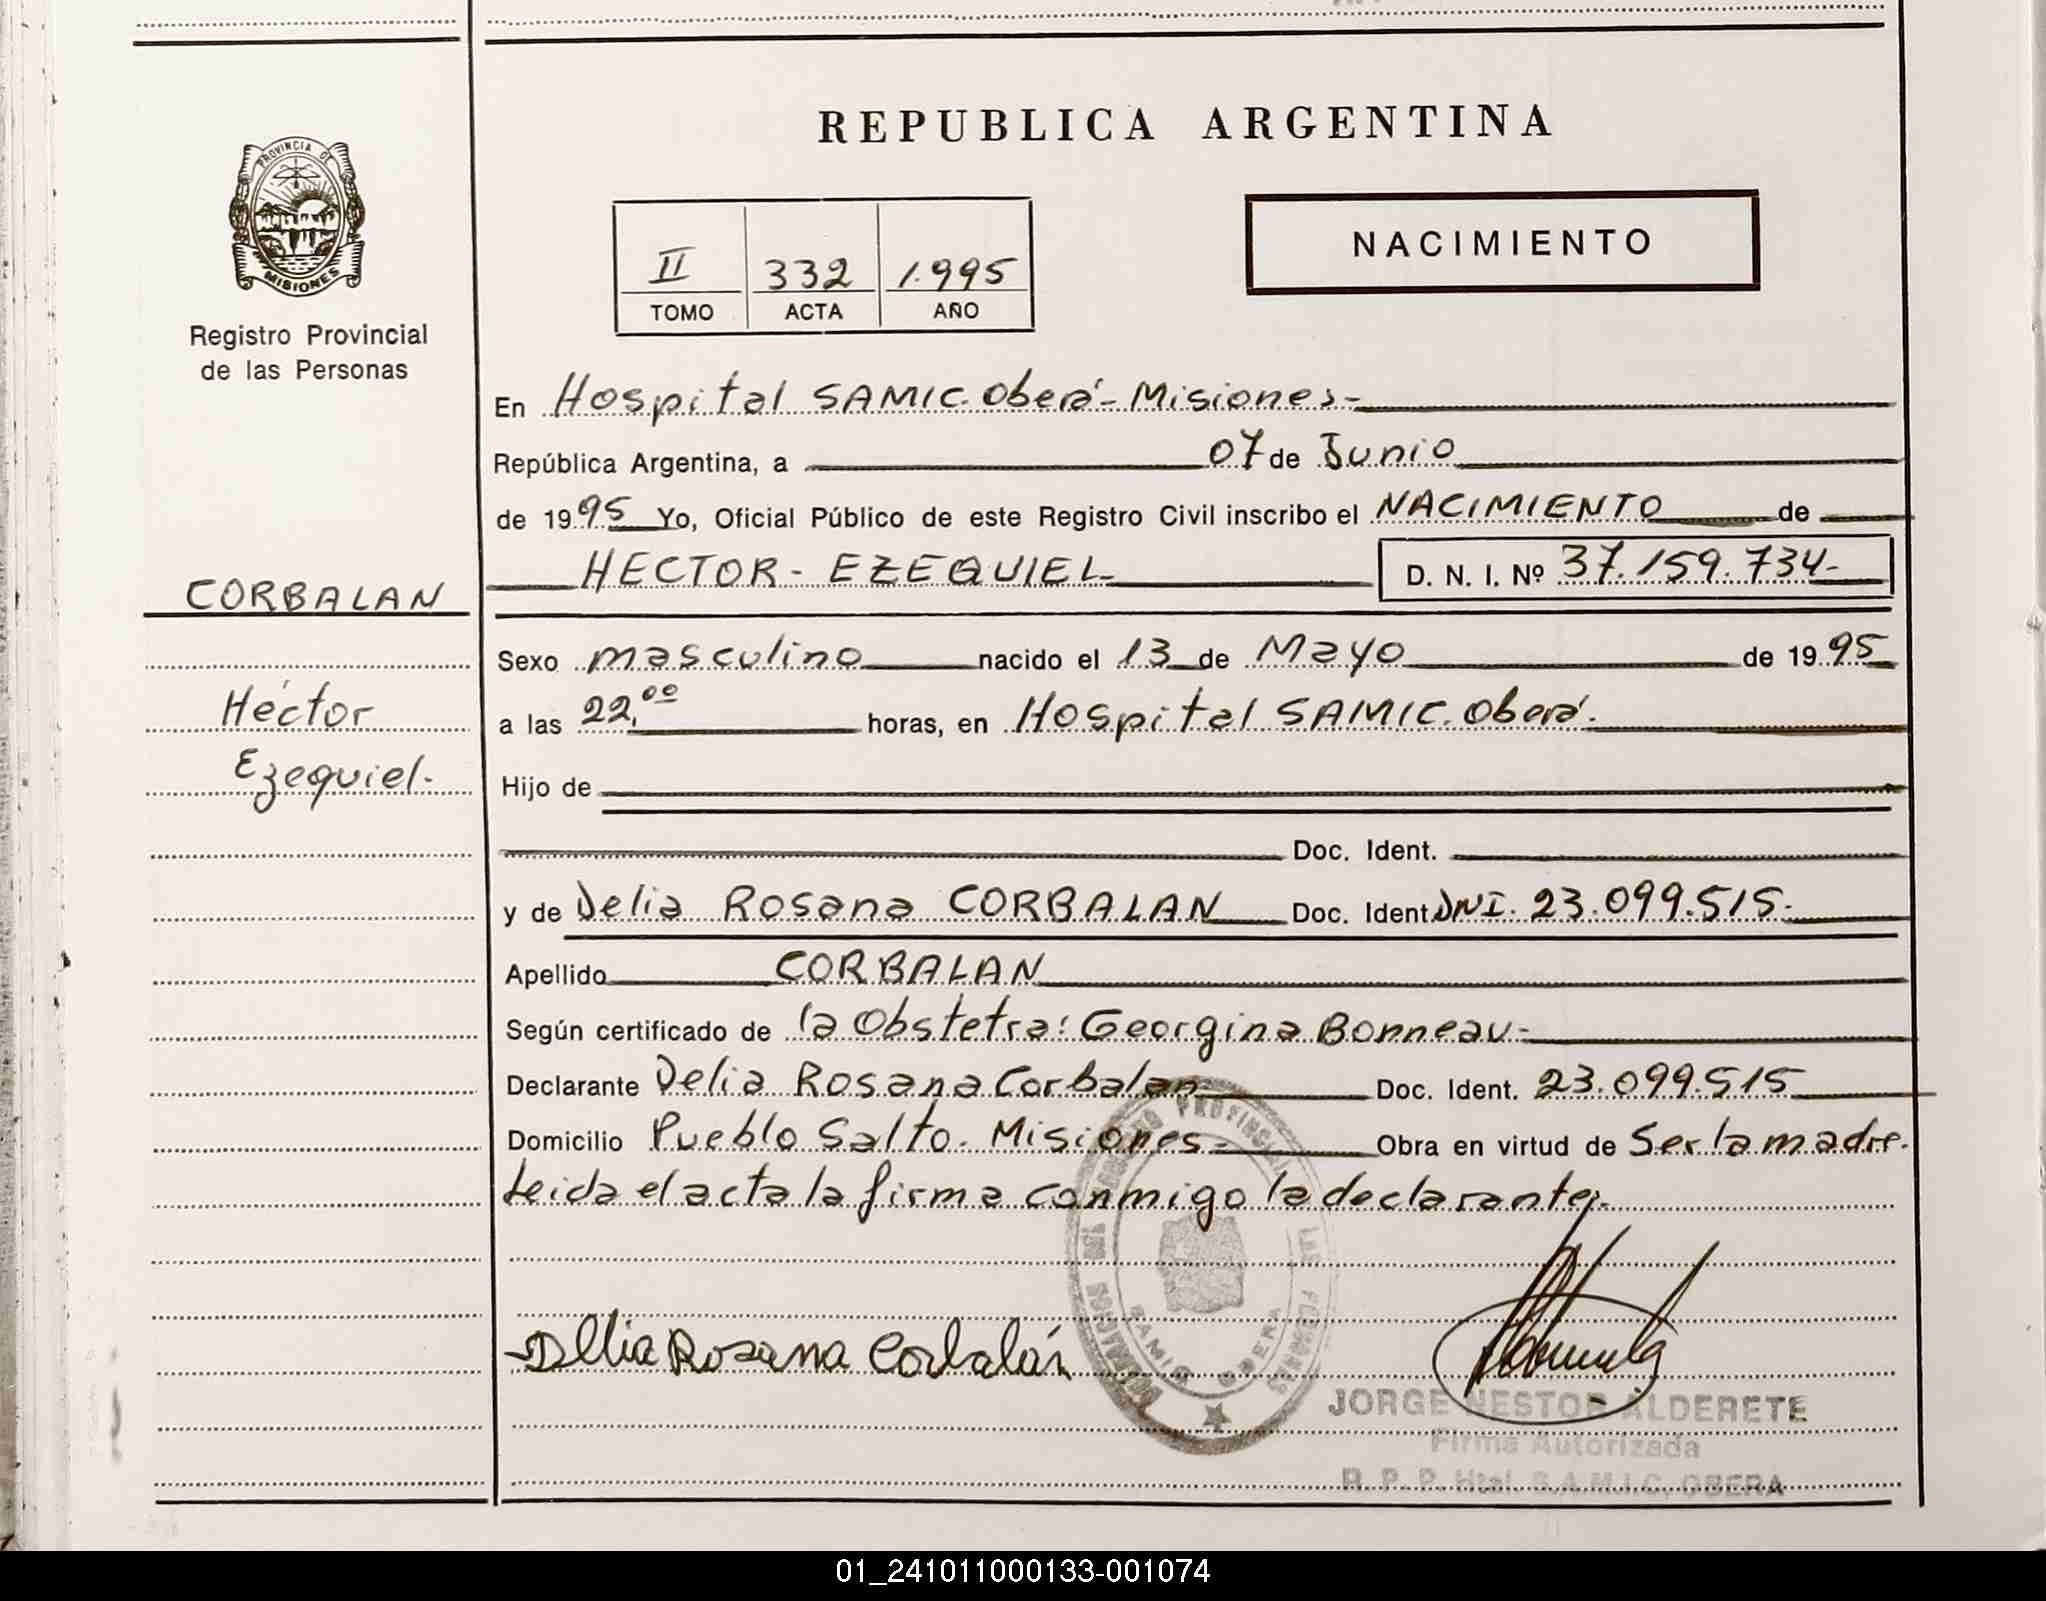 REPUBLICA ARGENTINA
PROVINCIA DE
MISIONES
Registro Provincial
de las Personas
NACIMIENTO
II 332 1.995
TOMO ACTA AÑO
En Hospital SAMIC. Oberá - Misiones-
República Argentina, a 07 de Junio
de 1995 Yo, Oficial Público de este Registro Civil inscribo el NACIMIENTO de
HECTOR - EZEQUIEL- D. N. I. Nº 37.159.734-
CORBALAN
Héctor
Ezequiel-
Sexo masculino nacido el 13 de Mayo de 1995
a las 22,00 horas, en Hospital SAMIC. Oberá.
Hijo de
Doc. Ident.
y de Delia Rosana CORBALAN Doc. Ident DNI. 23.099.515-
Apellido CORBALAN
Según certificado de la Obstetra: Georgina Bonneau-
Declarante Delia Rosana Corbalan Doc. Ident. 23.099.515
Domicilio Pueblo Salto. Misiones- Obra en virtud de Ser la madre.
Leida el acta la firma conmigo la declarante.
Dellia Rosana Corbalán
SAMIC OBERA
JORGE NESTOR ALDERETE
Firma Autorizada
R. P. P. Htal. S.A.M.I.C. OBERA
01_241011000133-001074